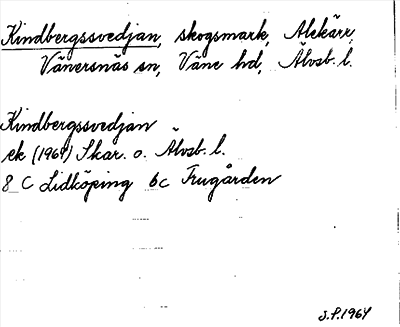 Kindbergssvedjan, skogsmark, Alekärr,
Vänersnäs sn, Väne hd, Älvsb. l.
Kindbergssvedjan
ek (1964) Skar. o. Älvsb. l.
8 C Lidköping 6c Frugården
J.P.1964